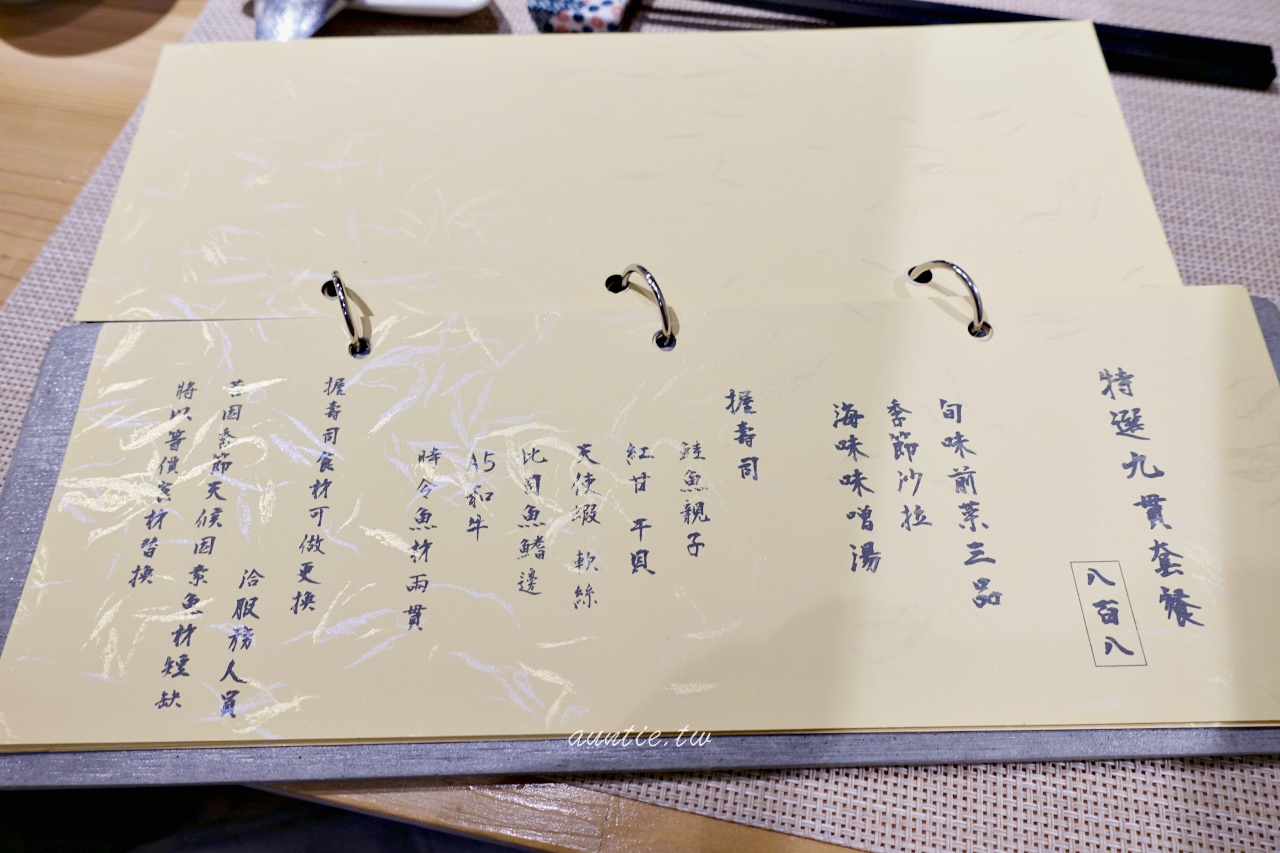 特選九貫套餐
八百八
旬味前菜三品
季節沙拉
海味味噌湯
握壽司
鮭魚親子
紅甘 干貝
天使蝦 軟絲
比目魚鰭邊
A5和牛
時令魚材兩貫
握壽司食材可做更換
洽服務人員
若因季節天候因素魚材短缺
將以等價食材替換
auntie.tw